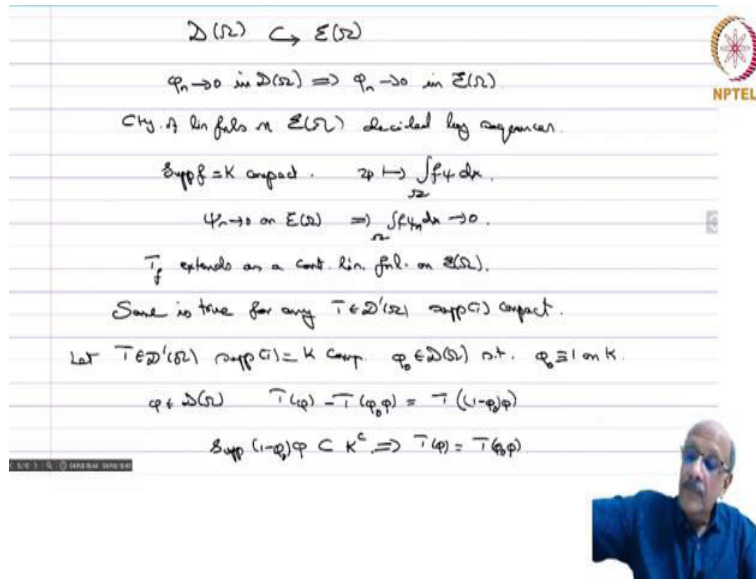 D(Ω) ↪ ε(Ω)
NPTEL
φₙ → 0 in D(Ω) ⇒ φₙ → 0 in ε(Ω).
Cty. of lin fnls on ε(Ω) decided by sequences.
Supp f = K compact. ψ ↦ ∫_Ω fψ dx.
ψₙ → 0 in ε(Ω) ⇒ ∫_Ω fψₙ dx → 0.
T_f extends as a cont. lin. fnl. on ε(Ω).
Same is true for any T ∈ D'(Ω) supp(T) compact.
Let T ∈ D'(Ω) supp(T) = K comp. φ₀ ∈ D(Ω) s.t. φ₀ ≡ 1 on K.
φ ∈ D(Ω) T(φ) - T(φ₀φ) = T((1-φ₀)φ)
Supp (1-φ₀)φ ⊂ Kᶜ ⇒ T(φ) = T(φ₀φ)